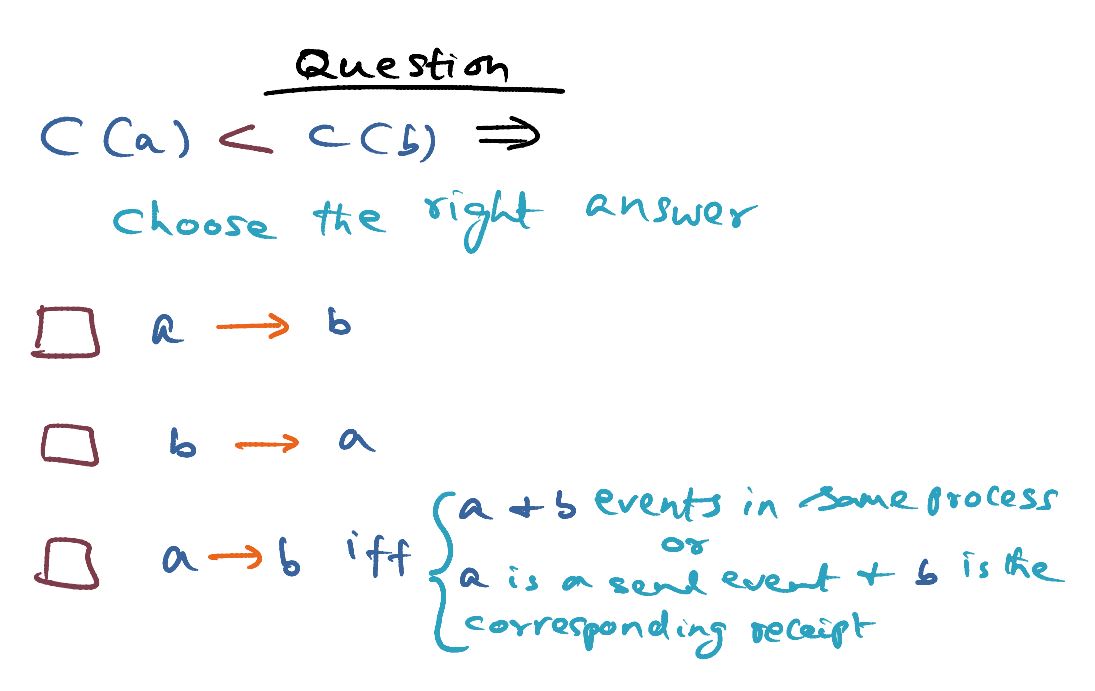 Question
C(a) < C(b) ⇒
Choose the right answer
a → b
b → a
a → b iff { a + b events in same process
or
a is a send event + b is the
corresponding receipt